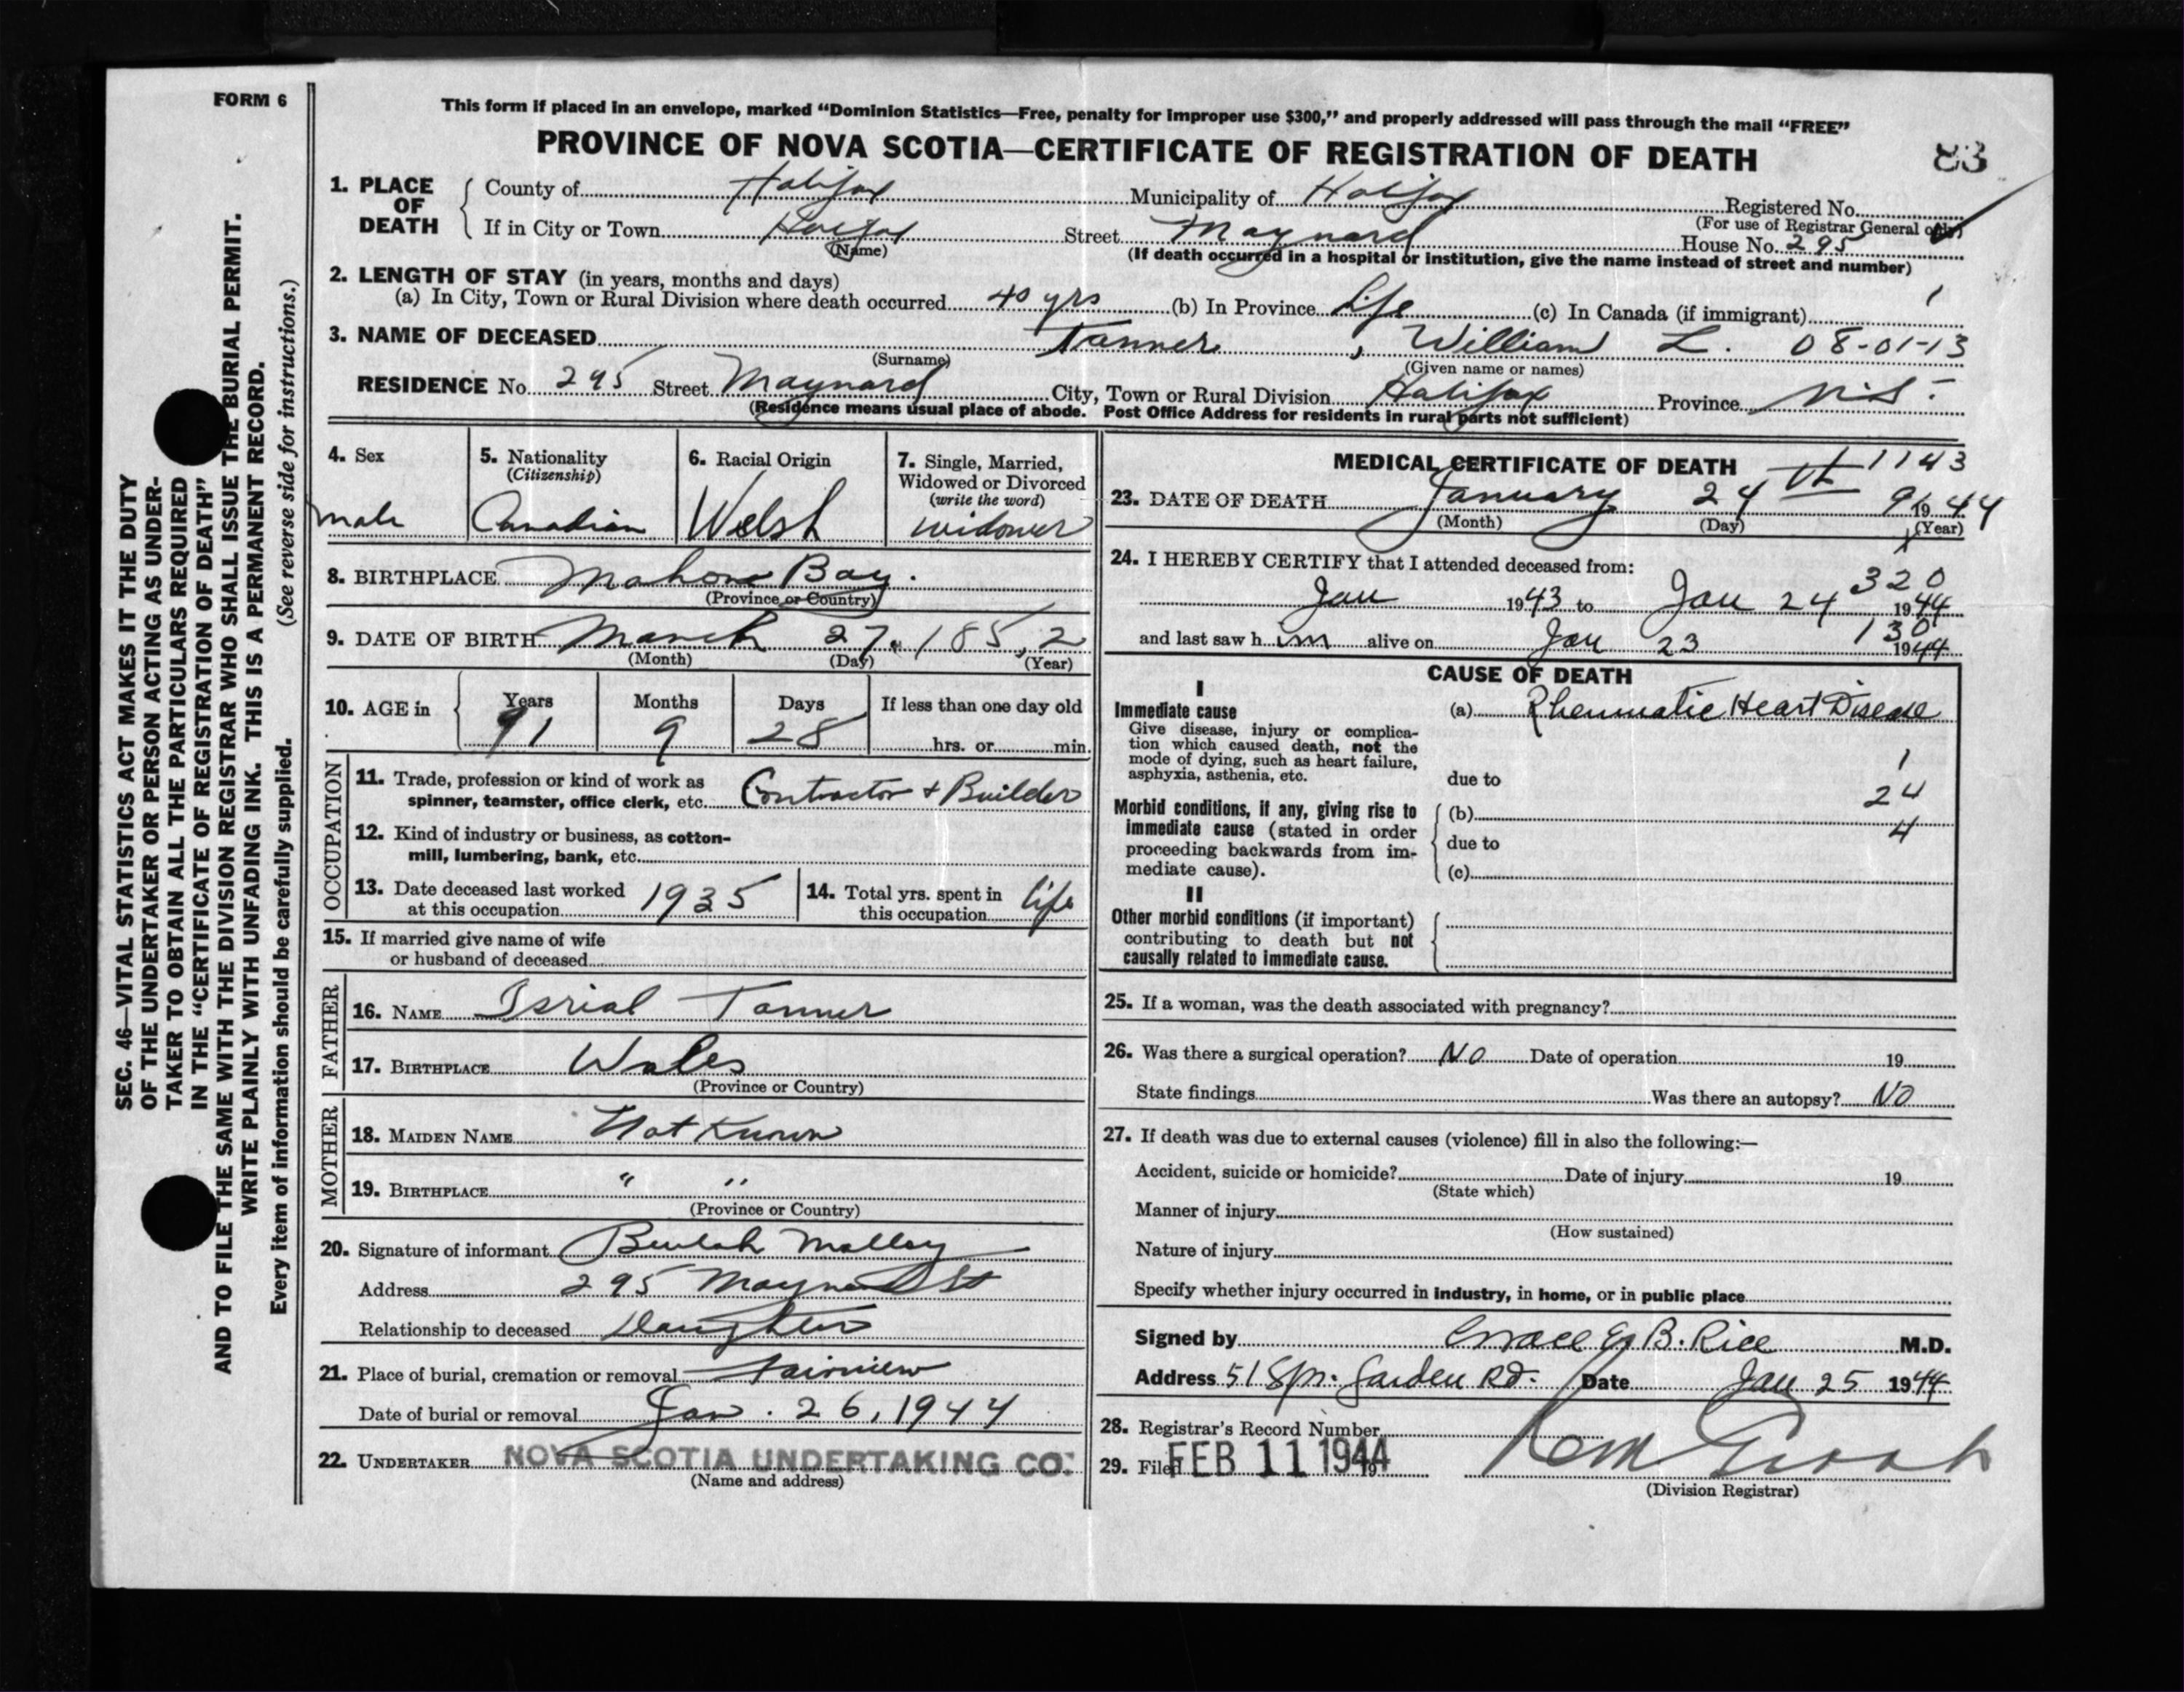 FORM 6
This form if placed in an envelope, marked “Dominion Statistics—Free, penalty for improper use $300,” and properly addressed will pass through the mail “FREE”
PROVINCE OF NOVA SCOTIA—CERTIFICATE OF REGISTRATION OF DEATH
83
1. PLACE OF DEATH
County of Halifax Municipality of Halifax Registered No.
(For use of Registrar General only)
If in City or Town Halifax Street Maynard House No. 295
(Name) (If death occurred in a hospital or institution, give the name instead of street and number)
2. LENGTH OF STAY (in years, months and days)
(a) In City, Town or Rural Division where death occurred 40 yrs (b) In Province Life (c) In Canada (if immigrant) 1
3. NAME OF DECEASED Tanner, William L. 08-01-13
(Surname) (Given name or names)
RESIDENCE No. 295 Street Maynard City, Town or Rural Division Halifax Province N.S.
(Residence means usual place of abode. Post Office Address for residents in rural parts not sufficient)
4. Sex
male
5. Nationality
(Citizenship)
Canadian
6. Racial Origin
Welsh
7. Single, Married,
Widowed or Divorced
(write the word)
widower
8. BIRTHPLACE Mahone Bay.
(Province or Country)
9. DATE OF BIRTH March 27. 1852
(Month) (Day) (Year)
10. AGE in
Years Months Days If less than one day old
91 9 28 hrs. or min.
OCCUPATION
11. Trade, profession or kind of work as
spinner, teamster, office clerk, etc. Contractor + Builder
12. Kind of industry or business, as cotton-
mill, lumbering, bank, etc.
13. Date deceased last worked
at this occupation 1935
14. Total yrs. spent in
this occupation life
15. If married give name of wife
or husband of deceased
FATHER
16. NAME Isrial Tanner
17. BIRTHPLACE Wales
(Province or Country)
MOTHER
18. MAIDEN NAME Not Known
19. BIRTHPLACE " "
(Province or Country)
20. Signature of informant Beulah Malloy
Address 295 Maynard St
Relationship to deceased Daughter
21. Place of burial, cremation or removal Fairview
Date of burial or removal Jan. 26, 1944
22. UNDERTAKER NOVA SCOTIA UNDERTAKING CO.
(Name and address)
MEDICAL CERTIFICATE OF DEATH 1143
23. DATE OF DEATH January 24th 1944
(Month) (Day) (Year)
24. I HEREBY CERTIFY that I attended deceased from:
320
Jan 1943 to Jan 24 1944
130
and last saw him alive on Jan 23 1944
CAUSE OF DEATH
I
Immediate cause
Give disease, injury or complica-
tion which caused death, not the
mode of dying, such as heart failure,
asphyxia, asthenia, etc.
(a) Rheumatic Heart Disease
1
due to
24
Morbid conditions, if any, giving rise to
immediate cause (stated in order
proceeding backwards from im-
mediate cause).
(b)
4
due to
(c)
II
Other morbid conditions (if important)
contributing to death but not
causally related to immediate cause.
25. If a woman, was the death associated with pregnancy?
26. Was there a surgical operation? NO Date of operation 19
State findings Was there an autopsy? NO
27. If death was due to external causes (violence) fill in also the following:—
Accident, suicide or homicide? Date of injury 19
(State which)
Manner of injury
(How sustained)
Nature of injury
Specify whether injury occurred in industry, in home, or in public place
Signed by Grace E. B. Rice M.D.
Address 51 Spr. Garden Rd. Date Jan 25 1944
28. Registrar's Record Number
29. Filed FEB 11 1944 19
(Division Registrar)
SEC. 46—VITAL STATISTICS ACT MAKES IT THE DUTY
OF THE UNDERTAKER OR PERSON ACTING AS UNDER-
TAKER TO OBTAIN ALL THE PARTICULARS REQUIRED
IN THE “CERTIFICATE OF REGISTRATION OF DEATH”
AND TO FILE THE SAME WITH THE DIVISION REGISTRAR WHO SHALL ISSUE THE BURIAL PERMIT.
WRITE PLAINLY WITH UNFADING INK. THIS IS A PERMANENT RECORD.
Every item of information should be carefully supplied. (See reverse side for instructions.)